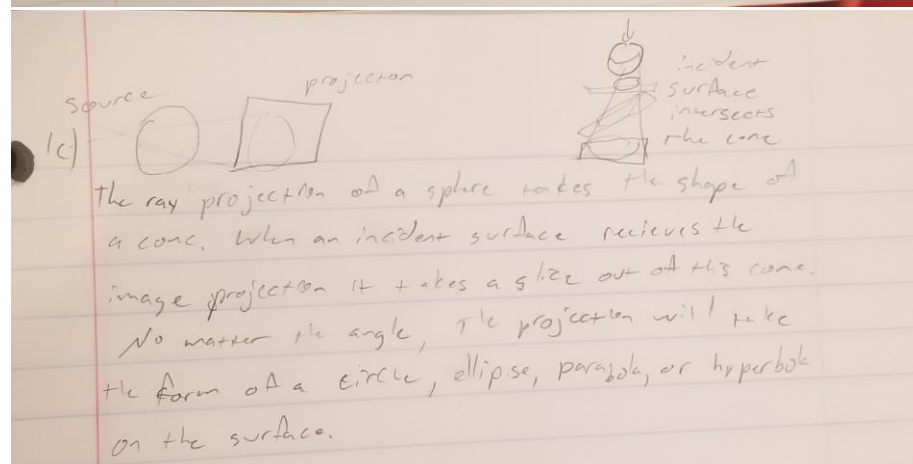 source
projection
incident
surface
intersects
the cone
1c)
The ray projection of a sphere takes the shape of
a cone. When an incident surface recieves the
image projection it takes a slice out of this cone.
No matter the angle, The projection will take
the form of a circle, ellipse, parabola, or hyperbola
on the surface.